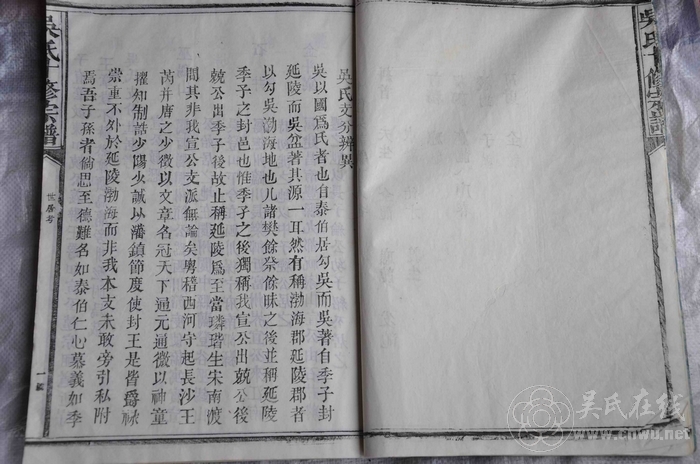 吳氏支分辨異
吳以國爲氏者也自泰伯居勾吳而吳著自季子封
延陵而吳益著其源一耳然有稱渤海郡延陵郡者
以勾吳渤海地也凡諸樊餘祭餘昧之後並稱延陵
季子之封邑也惟季子之後獨稱我宣公出兢公後
兢公出季子後故止稱延陵爲至當璘瑎生宋南渡
間其非我宣公支派無論矣粵稽西河守起長沙王
芮并唐之少微以文章名冠天下通元通微以神童
擢知制誥少陽少誠以藩鎮節度使封王是皆爵祿
崇重不外於延陵渤海而非我本支未敢旁引私附
焉吾子孫者尙思至德難名如泰伯仁心慕義如季
吳氏十修宗譜
世居考
一
吳氏十修宗譜
吴氏在线
www.cnwu.net